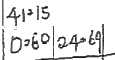 41=15
0=60 24=69